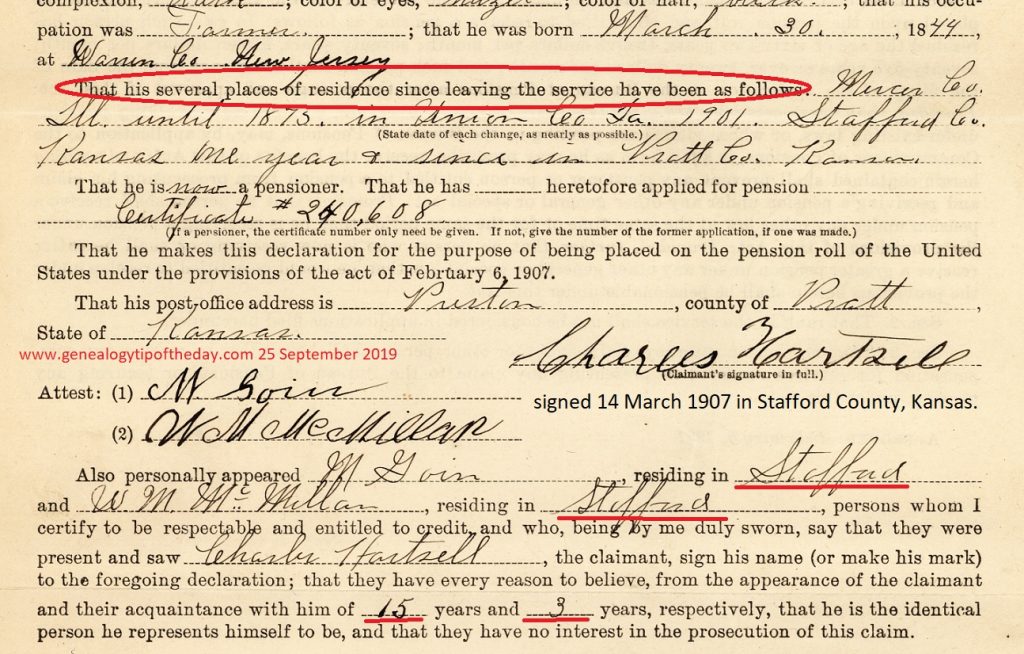 complexion, Dark ; color of eyes, hazel ; color of hair, ; that his occu-
pation was Farmer. ; that he was born March . 30. , 1844,
at Warren Co New Jersey
That his several places of residence since leaving the service have been as follows. Mercer Co.
Ill. until 1875. in Union Co Ia. 1901. Stafford Co.
(State date of each change, as nearly as possible.)
Kansas one year & since in Pratt Co. Kansas.
That he is now a pensioner. That he has heretofore applied for pension
Certificate # 240,608
(If a pensioner, the certificate number only need be given. If not, give the number of the former application, if one was made.)
That he makes this declaration for the purpose of being placed on the pension roll of the United
States under the provisions of the act of February 6, 1907.
That his post-office address is Preston , county of Pratt ,
State of Kansas.
www.genealogytipoftheday.com 25 September 2019
Charles Hartsell
(Claimant's signature in full.)
Attest: (1) M Goin
signed 14 March 1907 in Stafford County, Kansas.
(2) W M McMillan
Also personally appeared M Goin , residing in Stafford
and W M McMillan , residing in Stafford , persons whom I
certify to be respectable and entitled to credit, and who, being by me duly sworn, say that they were
present and saw Charles Hartsell , the claimant, sign his name (or make his mark)
to the foregoing declaration; that they have every reason to believe, from the appearance of the claimant
and their acquaintance with him of 15 years and 3 years, respectively, that he is the identical
person he represents himself to be, and that they have no interest in the prosecution of this claim.